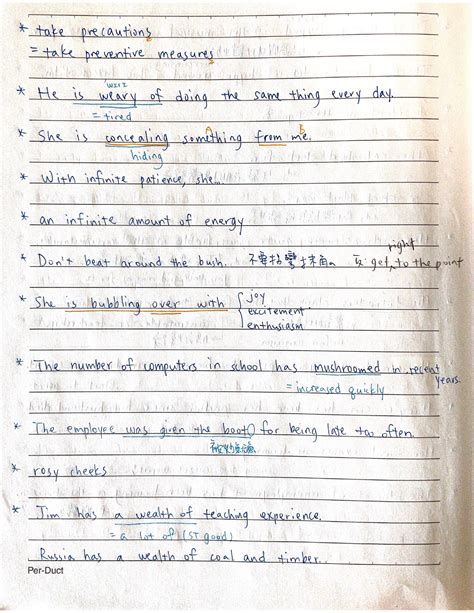 * take precautions
= take preventive measures
* He is weary of doing the same thing every day.
= tired
* She is concealing something from me.
A B
hiding
* With infinite patience, she...
* an infinite amount of energy
* Don't beat around the bush. 不要拐彎抹角。 反: get right to the point
* She is bubbling over with { joy
excitement
enthusiasm
* The number of computers in school has mushroomed in recent years.
= increased quickly
* The employee was given the boot() for being late too often.
被炒魷魚
* rosy cheeks
* Tim has a wealth of teaching experience.
= a lot of (ST good)
Russia has a wealth of coal and timber.
Per-Duct